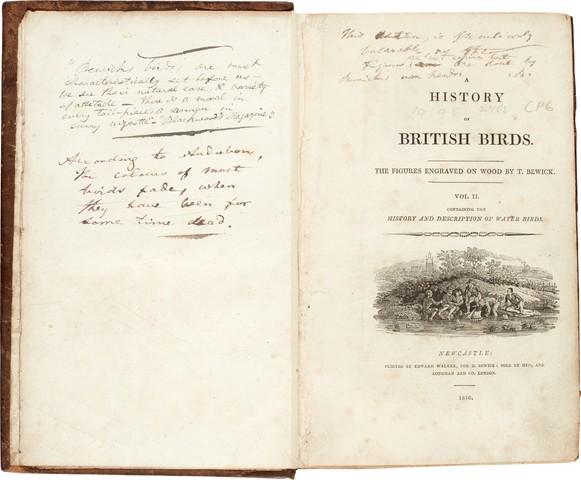 "Bewick's birds, are most
characteristically set before us —
we see their natural ease, & variety
of attitude — There is a moral in
every tail-piece; a sermon in
every vignette." Blackwood's Magazine
According to Audubon,
the colours of most
birds fade, when
they have been for
some time dead.
This edition, is the only
valuable
figures are done by
Bewick's own hand.
A
HISTORY
OF
BRITISH BIRDS.
CPG
THE FIGURES ENGRAVED ON WOOD BY T. BEWICK.
VOL. II.
CONTAINING THE
HISTORY AND DESCRIPTION OF WATER BIRDS.
NEWCASTLE:
PRINTED BY EDWARD WALKER, FOR T. BEWICK: SOLD BY HIM, AND
LONGMAN AND CO. LONDON.
1816.